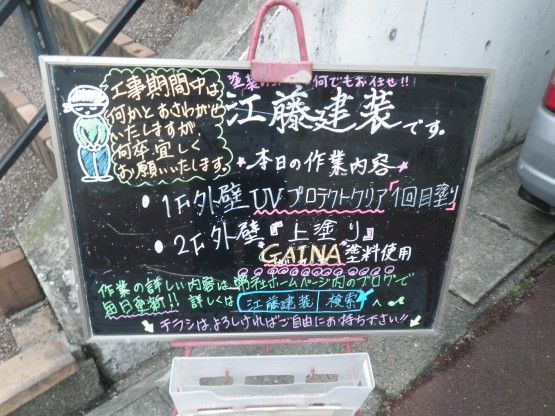 工事期間中は
何かとおさわがせ
いたしますが
何卒宜しく
お願いいたします。
何でもお任せ!!
江藤建装です。
★本日の作業内容★
・1F外壁UVプロテクトクリア「1回目塗り」
・2F外壁『上塗り』
"GAINA"塗料使用
作業の詳しい内容は弊社ホームページ内のブログで
毎日更新!! 詳しくは 江藤建装 検索 へ
チラシはよろしければご自由にお持ち下さい!!